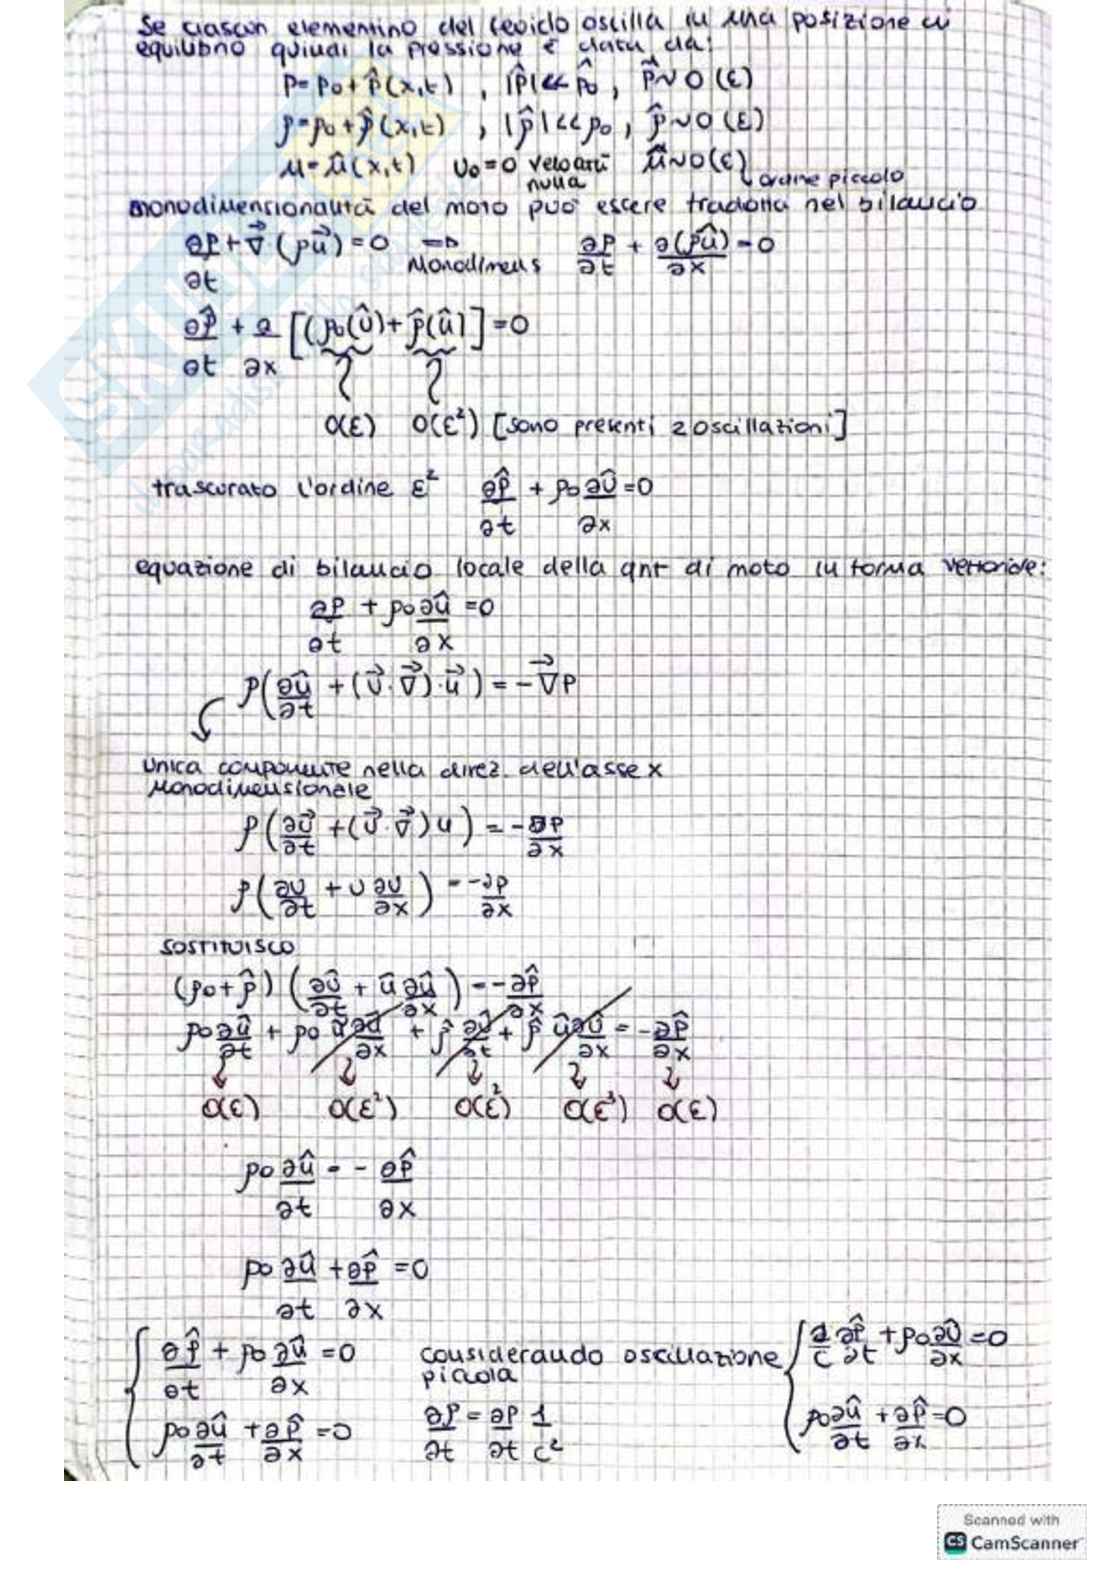 Se ciascun elementino del fluido oscilla in una posizione di
equilibrio quindi la pressione è data da:
P = p₀ + p̂(x,t) , |p̂| << p̂₀ , p̂ ~ O(ε)
ρ = ρ₀ + ρ̂(x,t) , |ρ̂| << ρ₀ , ρ̂ ~ O(ε)
u = û(x,t) U₀ = 0 velocità nulla û ~ O(ε) ordine piccolo
monodimensionalità del moto può essere tradotta nel bilancio
∂ρ/∂t + ∇⃗(ρu⃗) = 0 => Monodimens ∂ρ/∂t + ∂(ρû)/∂x = 0
∂ρ̂/∂t + ∂/∂x [(ρ₀(û) + ρ̂(û)] = 0
O(ε) O(ε²) [sono presenti 2 oscillazioni]
trascurato l'ordine ε² ∂ρ̂/∂t + ρ₀ ∂û/∂x = 0
equazione di bilancio locale della qnt di moto in forma vettoriale:
∂ρ/∂t + ρ₀ ∂û/∂x = 0
ρ(∂û/∂t + (U⃗·∇⃗)·u⃗) = -∇⃗P
unica componente nella direz. dell'asse x
Monodimensionale
ρ(∂u⃗/∂t + (U⃗·∇⃗)u) = -∂P/∂x
ρ(∂U/∂t + U ∂U/∂x) = -∂p/∂x
SOSTITUISCO
(ρ₀ + ρ̂) (∂û/∂t + û ∂û/∂x) = -∂p̂/∂x
ρ₀ ∂û/∂t + ρ₀ û ∂û/∂x + ρ̂ ∂û/∂t + ρ̂ û ∂û/∂x = -∂p̂/∂x
O(ε) O(ε²) O(ε²) O(ε³) O(ε)
ρ₀ ∂û/∂t = - ∂p̂/∂x
ρ₀ ∂û/∂t + ∂p̂/∂x = 0
∂ρ̂/∂t + ρ₀ ∂û/∂x = 0 considerando oscillazione piccola 1/c ∂p̂/∂t + ρ₀ ∂û/∂x = 0
ρ₀ ∂û/∂t + ∂p̂/∂x = 0 ∂ρ/∂t = ∂p/∂t 1/c² ρ₀ ∂û/∂t + ∂p̂/∂x = 0
Scanned with
CS CamScanner